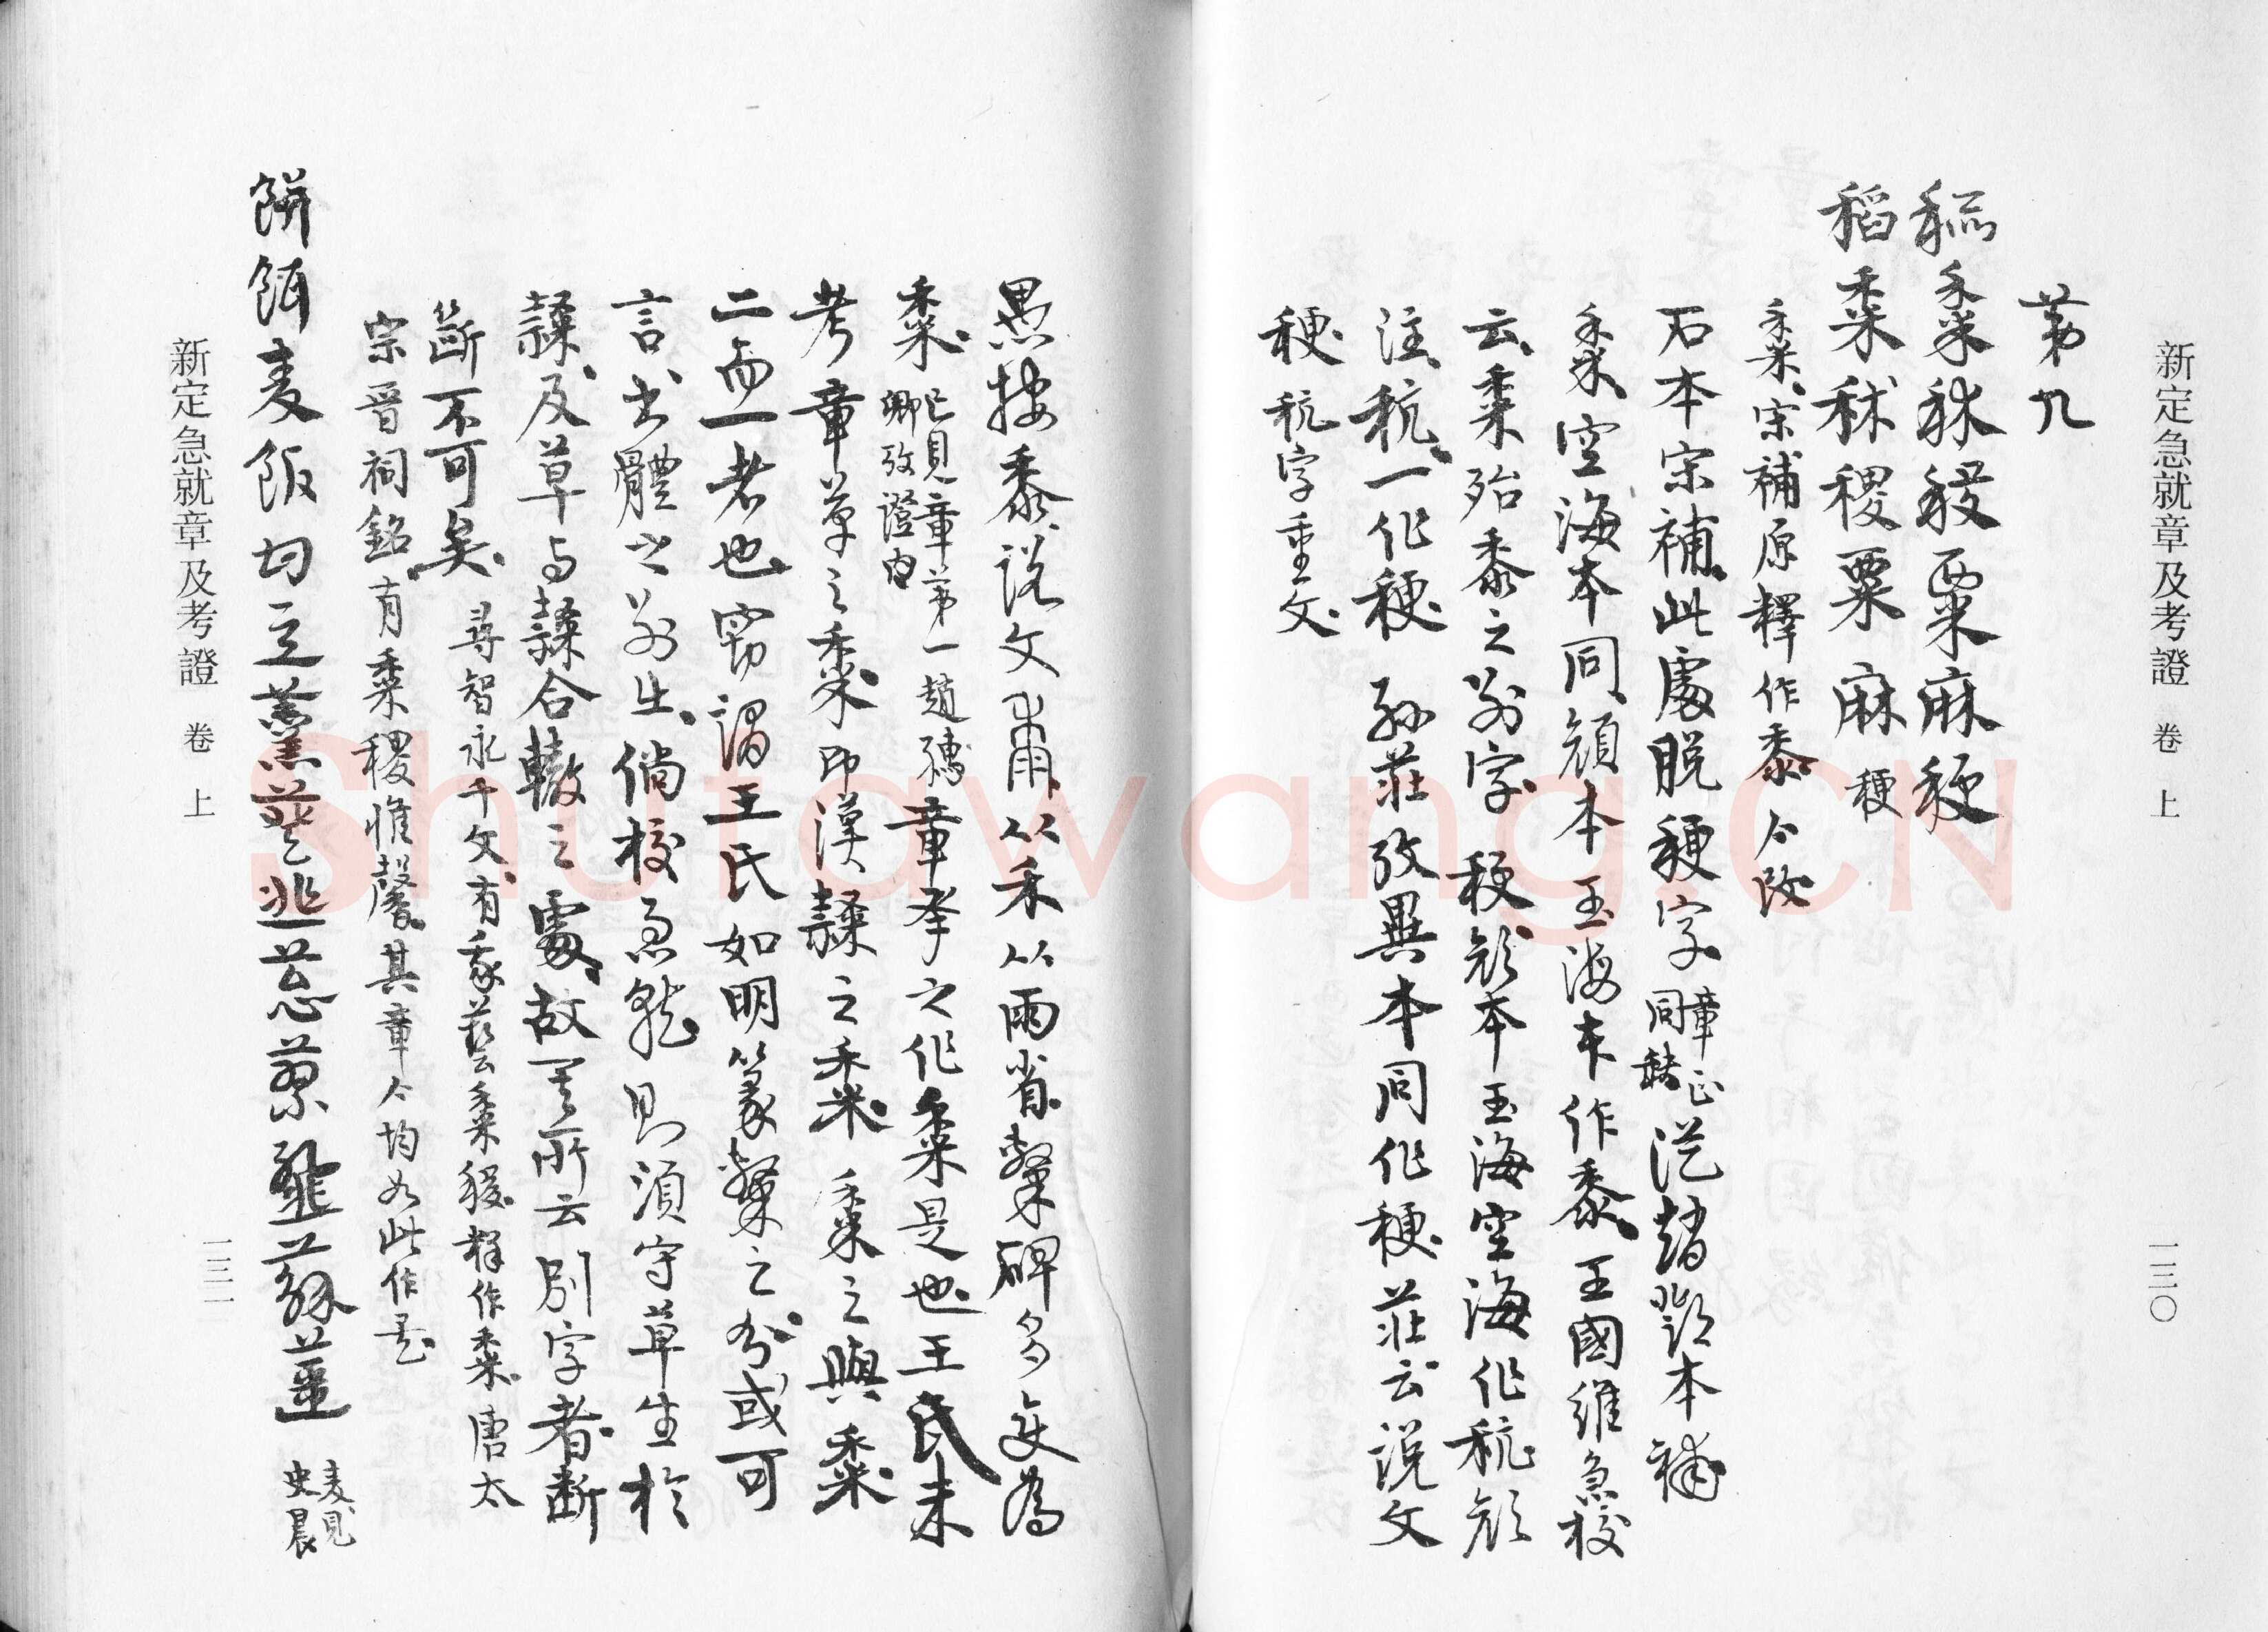 新定急就章及考證 卷上 一三〇
第九
稻黍秫稷粟麻稉
稻𥞩秫稷粟麻 稉
𥞩宋補原釋作黍今改
石本宋補此處脫稉字章正同 從趙 鄧本補
𥞩空海本同顏本玉海本作黍王國維急校
云𥞩殆黍之别字 稉顏本玉海空海作秔顏
注秔一作稉 孫莊攷異本同作稉莊云說文
稉秔字重文
愚按黍說文 从禾从雨省 碑多變為
𥞩已見章第一趙 卿攷證內 章 之作𥞩是也王氏未
考章草之𥞩即漢隸之𥞩 𥞩之與𥞩
二而一者也竊謂王氏如明篆 之分或可
言書體之别生倘校急就則須守草生於
隸及草與隸合轍之處故 所云別字者斷
斷不可矣 尋智永千文有我藝𥞩稷釋作𥞩唐太
宗晉祠銘有𥞩稷惟馨其章今均如此作 
餅餌麦飯甘豆羹葵韭葱蓼韰蘇薑 麦見史晨
新定急就章及考證 卷上 一三一
Shutawang.CN